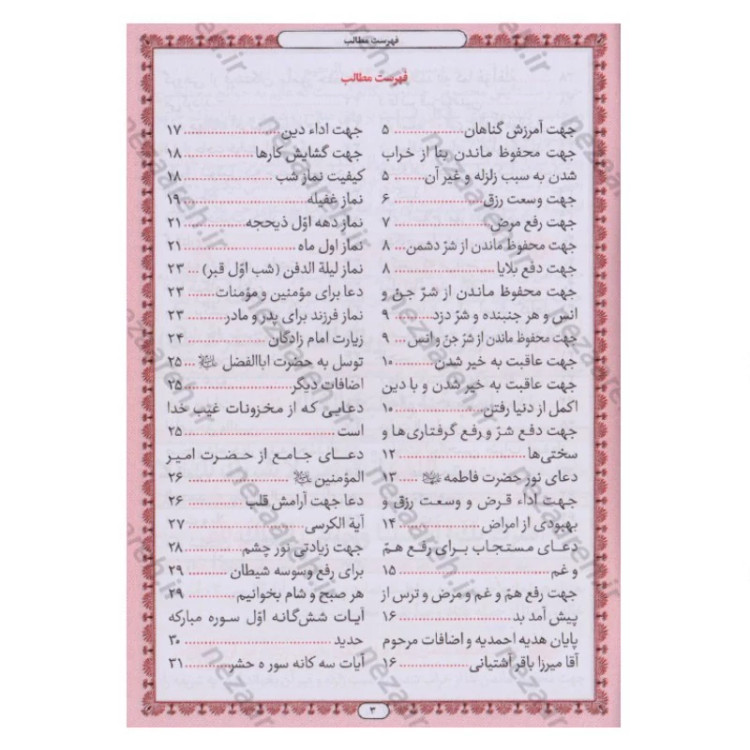 فهرست مطالب
فهرست مطالب
جهت آمرزش گناهان............ ۵
جهت محفوظ ماندن بنا از خراب
شدن به سبب زلزله و غیر آن...... ۵
جهت وسعت رزق................ ۶
جهت رفع مرض................. ۷
جهت محفوظ ماندن از شرّ دشمن... ۸
جهت دفع بلایا.................. ۸
جهت محفوظ ماندن از شرّ جنّ و
انس و هر جنبنده و شرّ دزد...... ۹
جهت محفوظ ماندن از شرّ جنّ و انس... ۹
جهت عاقبت به خیر شدن........ ۱۰
جهت عاقبت به خیر شدن و با دین
اکمل از دنیا رفتن............... ۱۰
جهت دفع شرّ و رفع گرفتاری‌ها و
سختی‌ها..................... ۱۲
دعای نور حضرت فاطمه ... ۱۳
جهت اداء قرض و وسعت رزق و
بهبودی از امراض.............. ۱۴
دعای مستجاب برای رفع همّ
و غم........................ ۱۵
جهت رفع همّ و غم و مرض و ترس از
پیش آمد بد................... ۱۶
پایان هدیه احمدیه و اضافات مرحوم
آقا میرزا باقر آشتیانی........... ۱۶
جهت اداء دین................ ۱۷
جهت گشایش کارها............. ۱۸
کیفیت نماز شب............... ۱۸
نماز غفیله.................... ۱۹
نماز دهه اوّل ذیحجه........... ۲۱
نماز اول ماه................... ۲۱
نماز لیلة الدفن (شب اوّل قبر)... ۲۳
دعا برای مؤمنین و مؤمنات...... ۲۳
نماز فرزند برای پدر و مادر....... ۲۳
زیارت امام زادگان.............. ۲۴
توسل به حضرت اباالفضل ... ۲۵
اضافات دیگر.................. ۲۵
دعایی که از مخزونات غیب خدا
است........................ ۲۵
دعای جامع از حضرت امیر
المؤمنین ................... ۲۶
دعا جهت آرامش قلب.......... ۲۶
آیة الکرسی................... ۲۷
جهت زیادتی نور چشم.......... ۲۸
برای رفع وسوسه شیطان........ ۲۹
هر صبح و شام بخوانیم.......... ۲۹
آیات شش‌گانه اوّل سوره مبارکه
حدید....................... ۳۰
آیات سه کانه سوره حشر........ ۳۱
۳
nezaareh.ir